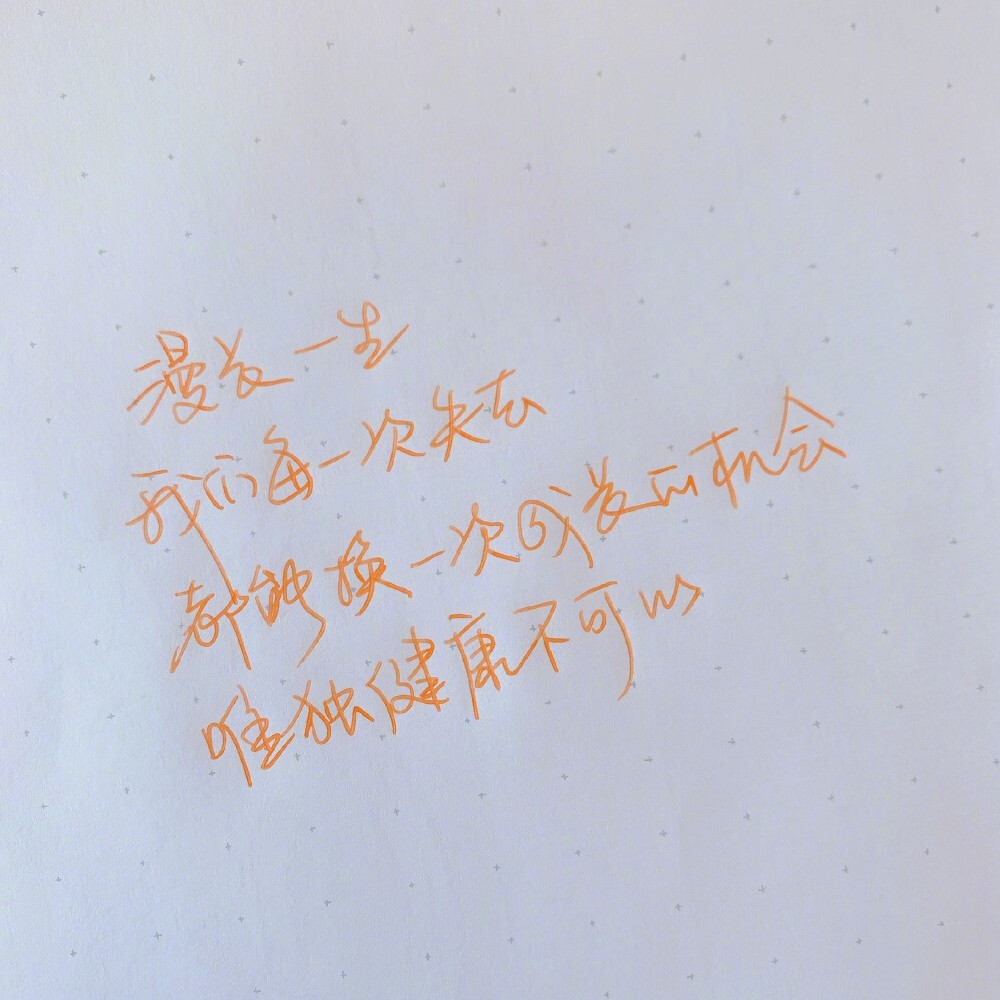 漫长一生
我们每一次失去
都能换一次成长的机会
唯独健康不可以